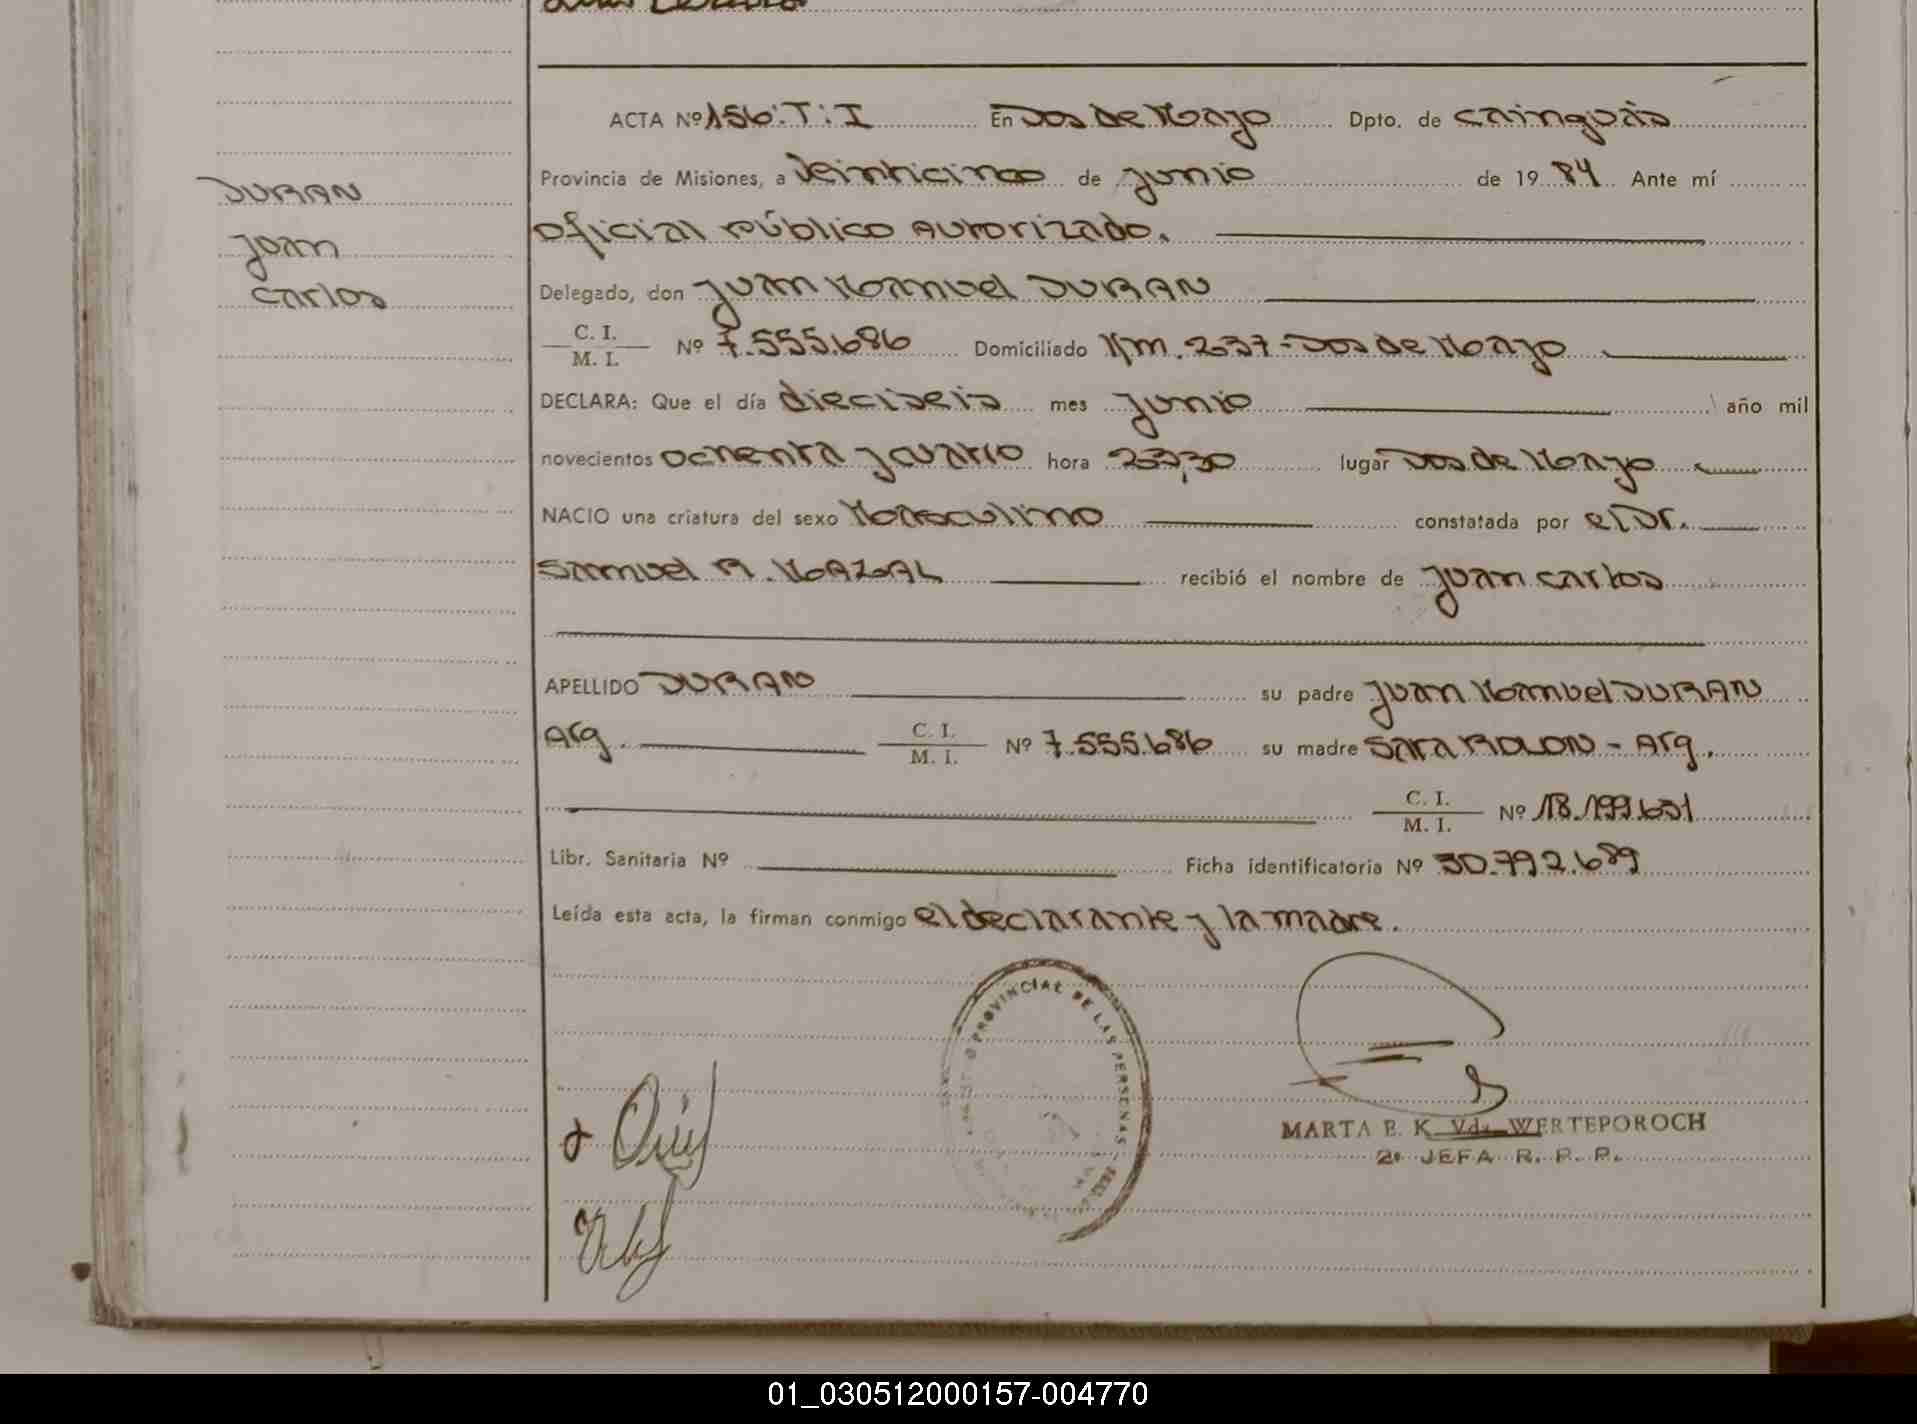 DURAN
Juan
Carlos
ACTA Nº 156:T:I En Dos de Mayo Dpto. de Cainguás
Provincia de Misiones, a Veinticinco de junio de 1984 Ante mí
Oficial Público Autorizado.
Delegado, don Juan Manuel DURAN
C. I.
M. I. Nº 7.555.686 Domiciliado Km. 237 - Dos de Mayo
DECLARA: Que el día dieciseis mes junio año mil
novecientos ochenta y cuatro hora 23,30 lugar Dos de Mayo
NACIO una criatura del sexo Masculino constatada por el Dr.
Samuel A. MAZAL recibió el nombre de Juan Carlos
APELLIDO DURAN su padre Juan Manuel DURAN
Arg. C. I.
M. I. Nº 7.555.686 su madre Sara ROLON - Arg.
C. I.
M. I. Nº 18.199.631
Libr. Sanitaria Nº Ficha identificatoria Nº 30.792.689
Leída esta acta, la firman conmigo el declarante y la madre.
PROVINCIAL DE LAS PERSONAS
MARTA E. K. Vda. WERTEPOROCH
2ª JEFA R. P. P.
01_030512000157-004770